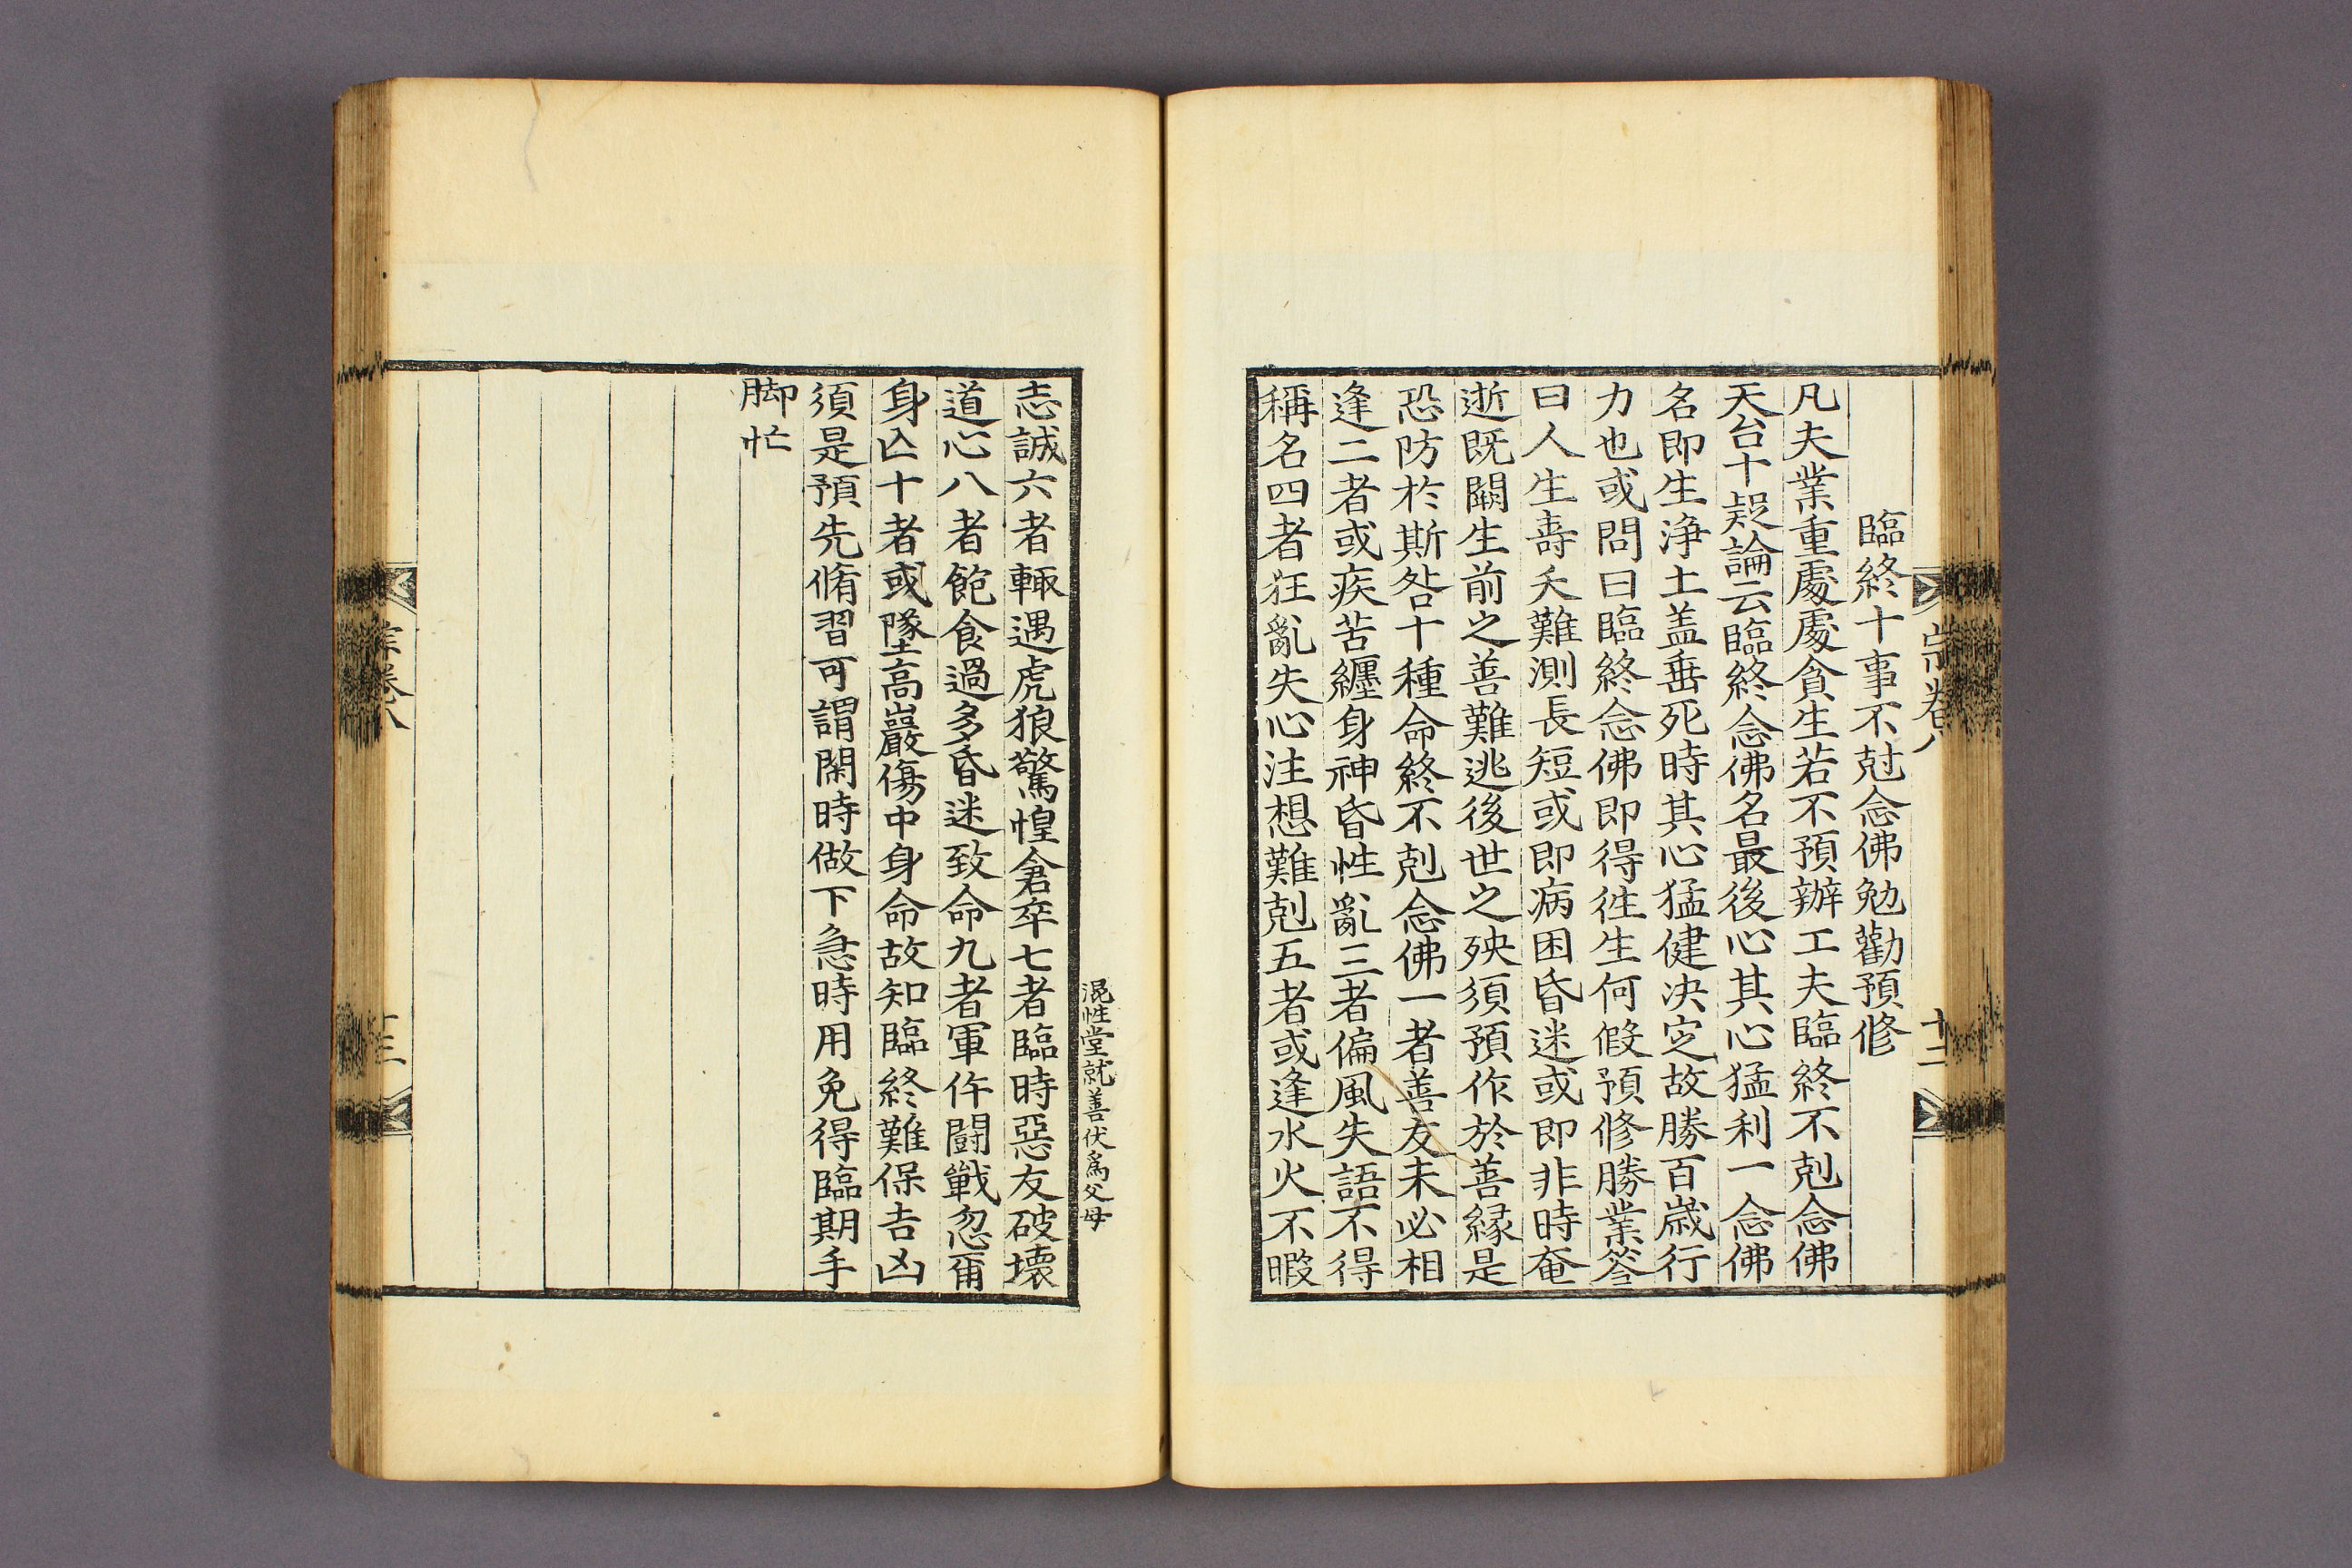 宗卷八
十二
臨終十事不尅念佛勉勸預修
凡夫業重處處貪生若不預辦工夫臨終不剋念佛
天台十疑論云臨終念佛名最後心其心猛利一念佛
名即生淨土盖垂死時其心猛健决定故勝百歲行
力也或問曰臨終念佛即得徃生何假預修勝業答
曰人生壽夭難測長短或即病困昏迷或即非時奄
逝既闕生前之善難逃後世之殃須預作於善緣是
恐防於斯咎十種命終不剋念佛一者善友未必相
逢二者或疾苦纏身神昏性亂三者偏風失語不得
稱名四者狂亂失心注想難剋五者或逢水火不暇
混性堂就善伏爲父母
志誠六者輙遇虎狼驚惶倉卒七者臨時惡友破壞
道心八者飽食過多昏迷致命九者軍仵鬪戰忽爾
身亾十者或墜高巖傷中身命故知臨終難保吉凶
須是預先脩習可謂閑時做下急時用免得臨期手
脚忙
宗卷八
十三